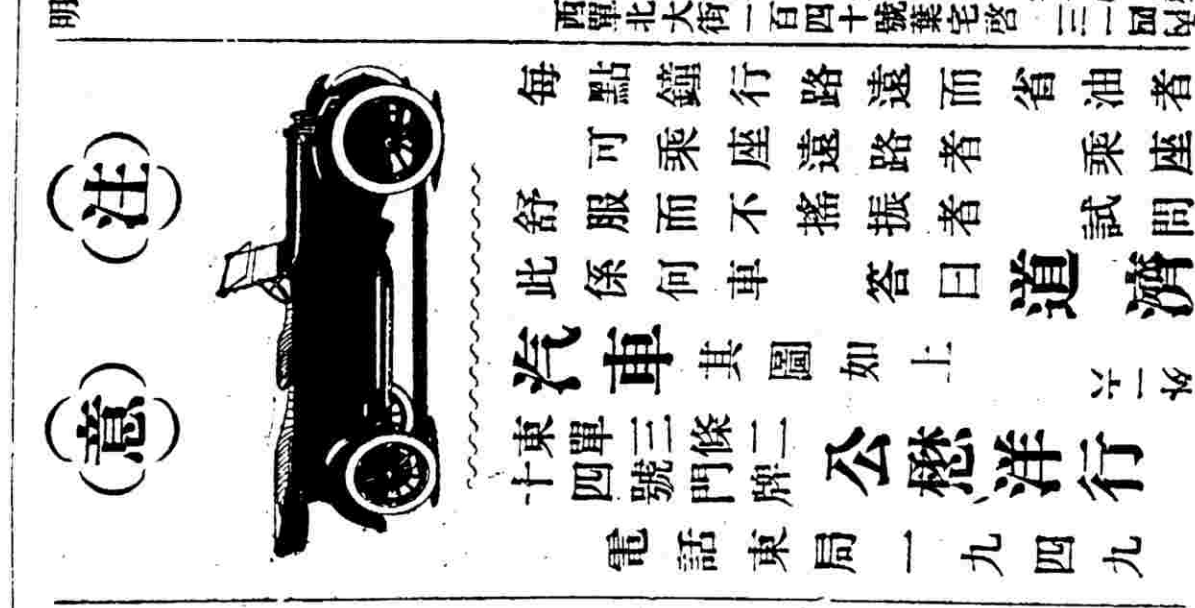 明
西單北大街一百四十號葉宅啓
注意
每點鐘行路遠而省油者
可乘座遠路者 乘座
舒服而不搖振者 試問
此係何車 答曰 道濟
汽車 其圖如上
東單三條二
十四號門牌
公懋洋行
電話東局一九四九